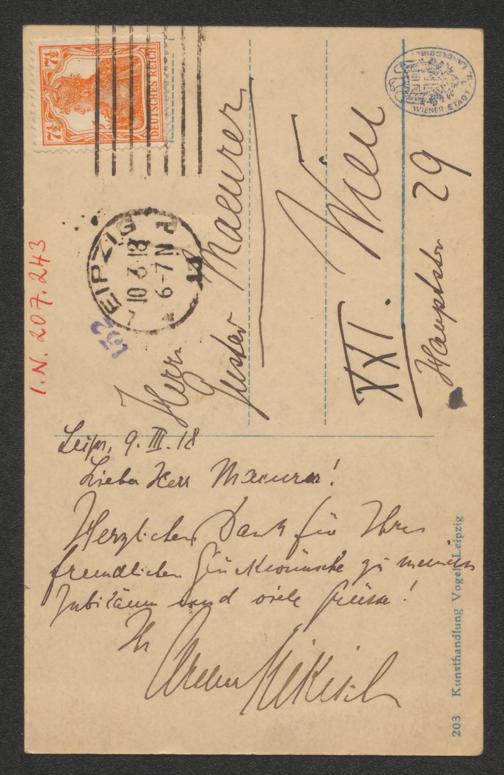 7½ 7½
DEUTSCHES REICH
LEIPZIG
10.3.18
6-7 N
52
I.N. 207.243
Herrn
Gustav Maeurer
Wien
XXI.
Hauptstr 29
Leipz, 9. III. 18
Lieber Herr Maeurer!
Herzlichen Dank für Ihre
freundlichen Glückwünsche zu meinem
Jubiläum und viele Grüsse!
Ihr
Arthur Nikisch
203 Kunsthandlung Vogel, Leipzig